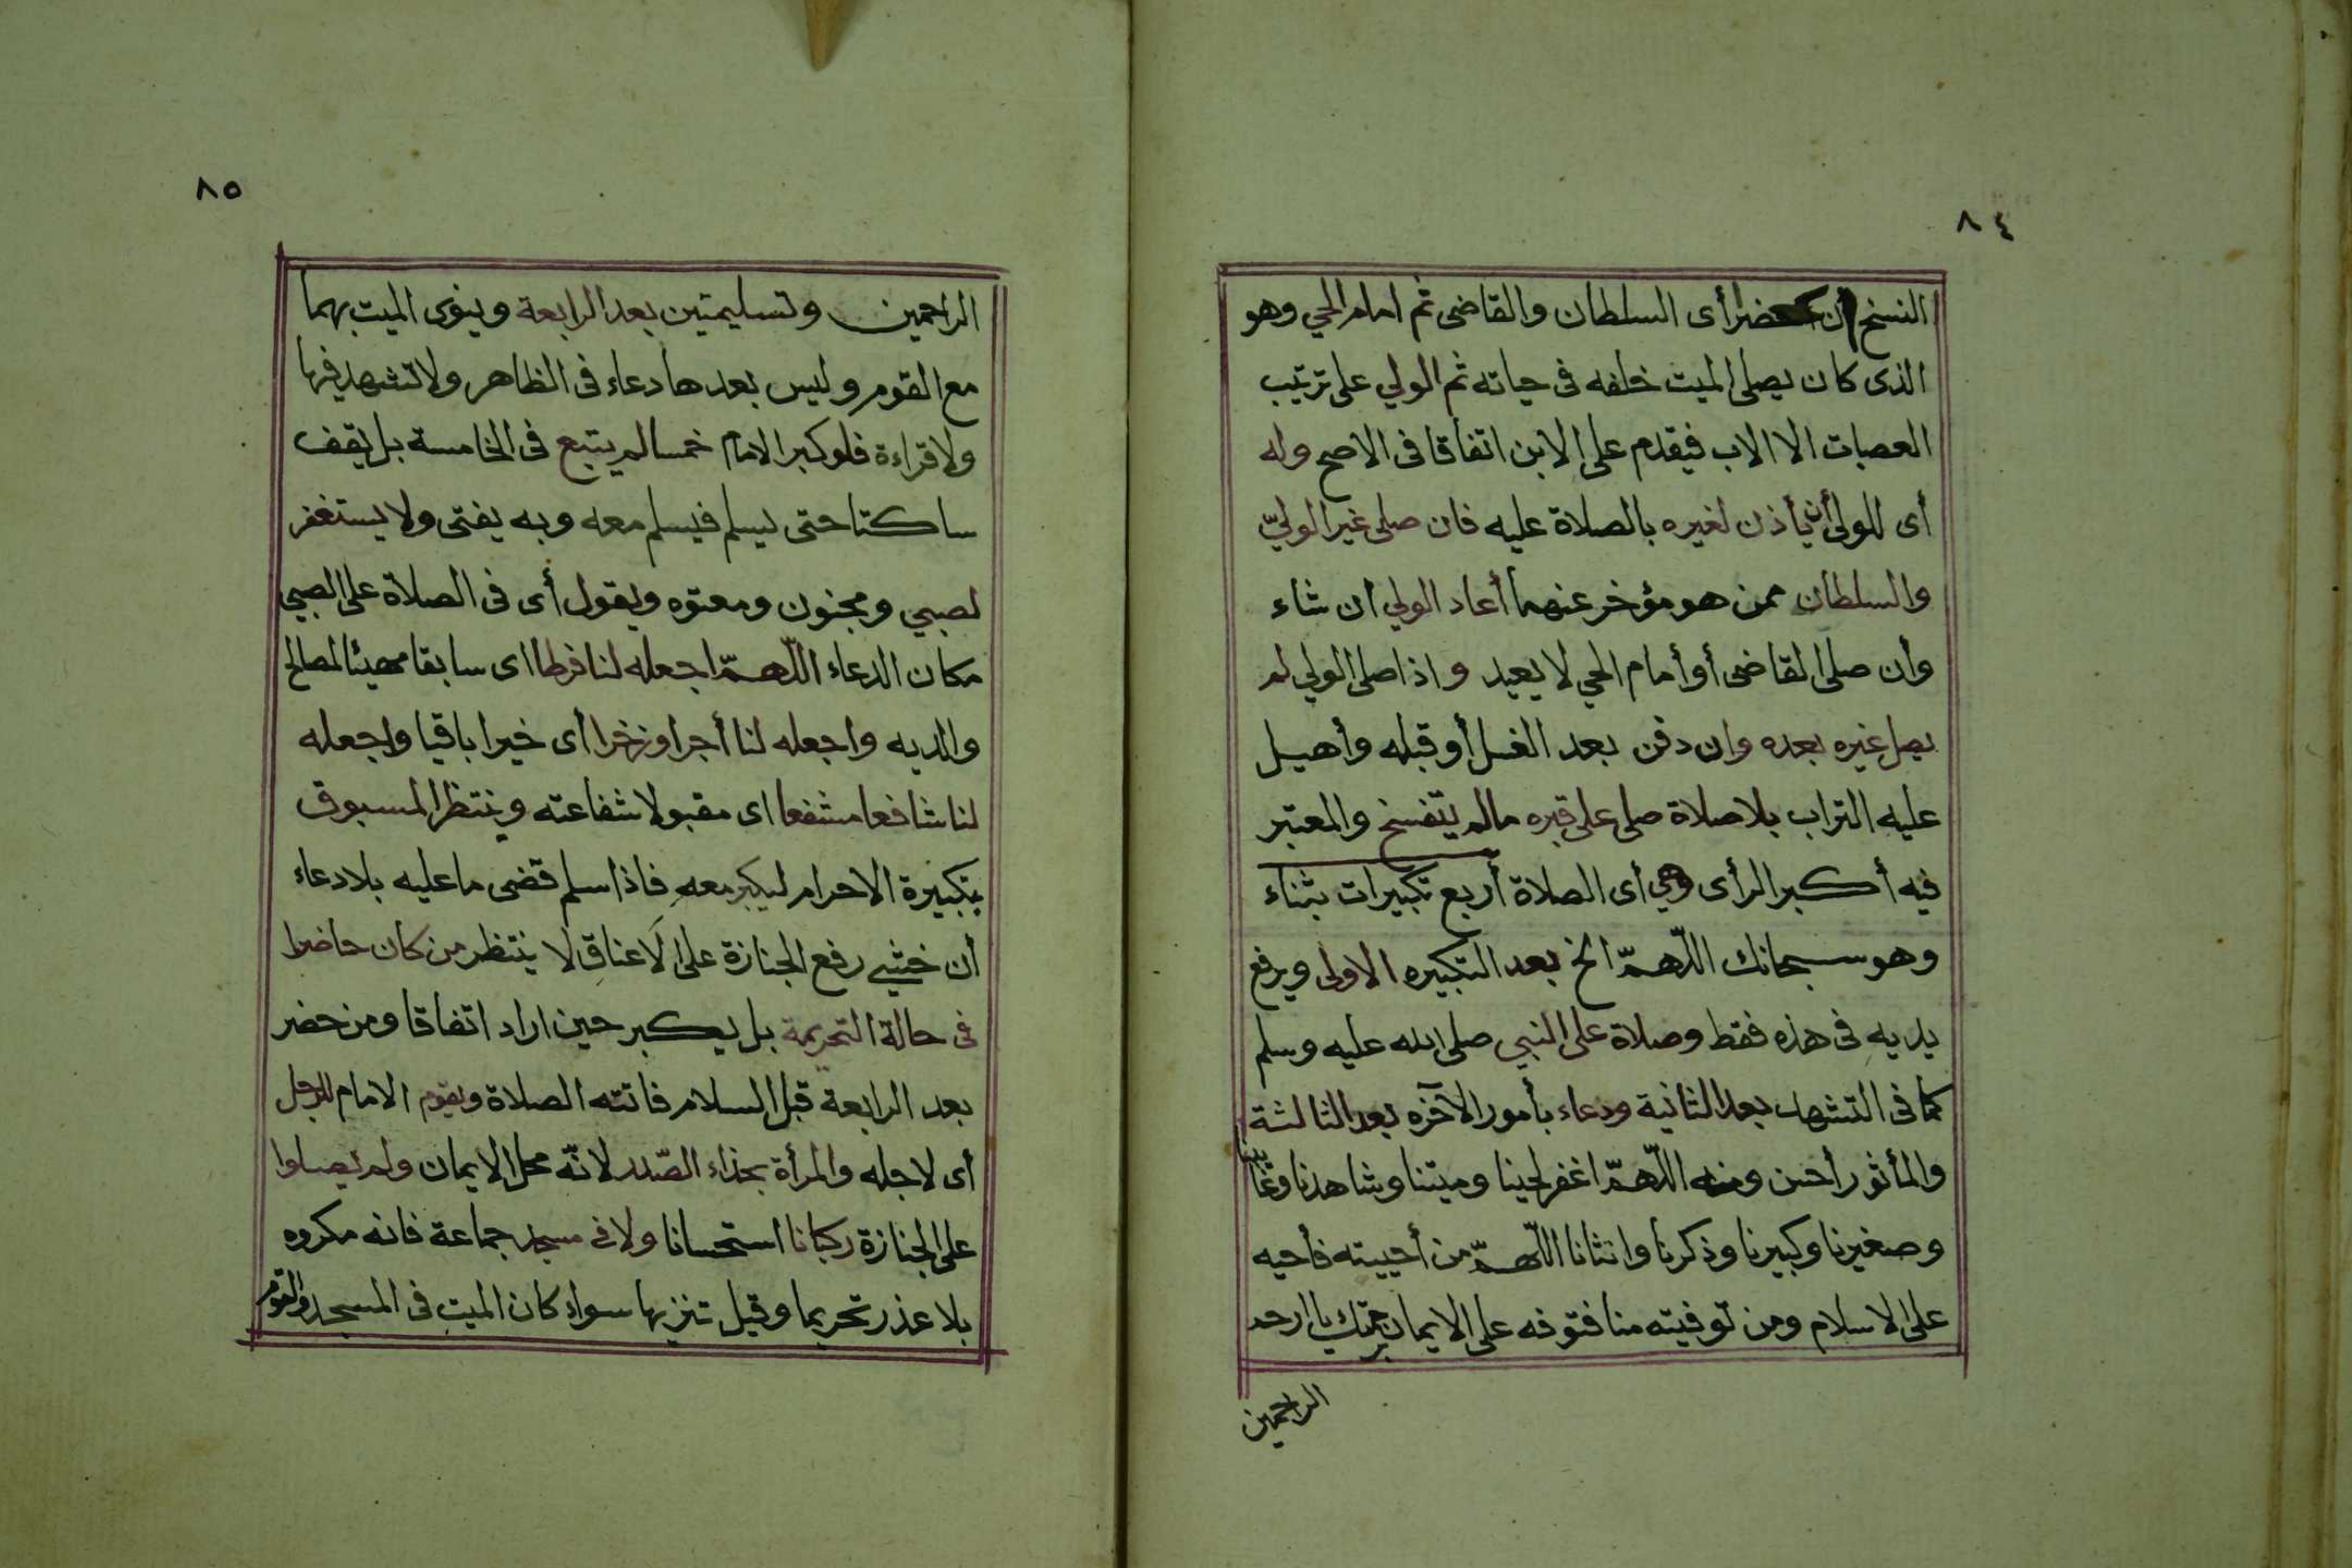 ٨٤
النسخ أن حضرا أى السلطان والقاضى ثم امام الحي وهو
الذى كان يصلى الميت خلفه فى حياته ثم الولي على ترتيب
العصبات الا الاب فيقدم على الابن اتفاقا فى الاصح وله
أى للولى أن يأذن لغيره بالصلاة عليه فان صلى غير الوليّ
والسلطان ممن هو مؤخر عنهما أعاد الولي ان شاء
وأن صلى القاضى أو أمام الحي لا يعيد واذا صلى الولي لم
يصل غيره بعده وان دفن بعد الغسل أو قبله وأهيل
عليه التراب بلا صلاة صلى على قبره مالم يتفسخ والمعتبر
فيه أكبر الرأى وهي أى الصلاة أربع تكبيرات بثناء
وهو سبحانك اللّهمّ الخ بعد التكبيره الاولى ويرفع
يديه فى هذه فقط وصلاة على النبي صلى الله عليه وسلم
كما فى التشهد بعد الثانية ودعاء بأمور الآخره بعد الثالثة
والمأثور أحسن ومنه اللّهمّ اغفر لحينا وميتنا وشاهدنا وغائبنا
وصغيرنا وكبيرنا وذكرنا وانثانا اللّهمّ من أحييته فأحيه
على الاسلام ومن توفيته منا فتوفه على الايمان برحمتك يا ارحم
الراحمين
٨٥
الراحمين وتسليمتين بعد الرابعة وينوى الميت بهما
مع القوم وليس بعدها دعاء فى الظاهر ولا تشهد فيها
ولا قراءة فلو كبر الامام خمسا لم يتبع فى الخامسة بل يقف
ساكتا حتى يسلم فيسلم معه وبه يفتى ولا يستغفر
لصبي ومجنون ومعتوه ويقول أى فى الصلاة على الصبي
مكان الدعاء اللّهمّ اجعله لنا فرطا اى سابقا مهيئا لمصالح
والديه واجعله لنا أجرا وزخرا أى خيرا باقيا واجعله
لنا شافعا مشفعا اى مقبولا شفاعته وينتظر المسبوق
بتكبيرة الاحرام ليكبر معه فاذا سلم قضى ما عليه بلا دعاء
أن خشي رفع الجنازة على الاعناق لا ينتظر من كان حاضرا
فى حالة التحريمة بل يكبر حين اراد اتفاقا ومن حضر
بعد الرابعة قبل السلام فاتته الصلاة ويقوم الامام للرجل
أى لاجله والمرأة بحذاء الصّدر لانّه محل الايمان ولم يصلوا
على الجنازة ركبانا استحسانا ولا فى مسجد جماعة فانه مكروه
بلا عذر تحريما وقيل تنزيها سواء كان الميت فى المسجد والقوم